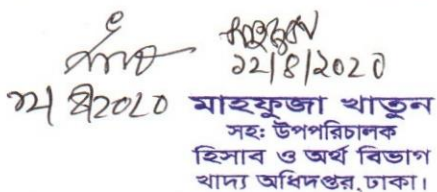 মাহফুজা
১২/৪/২০২০
১২/৪/২০২০
মাহফুজা খাতুন
সহঃ উপপরিচালক
হিসাব ও অর্থ বিভাগ
খাদ্য অধিদপ্তর, ঢাকা।